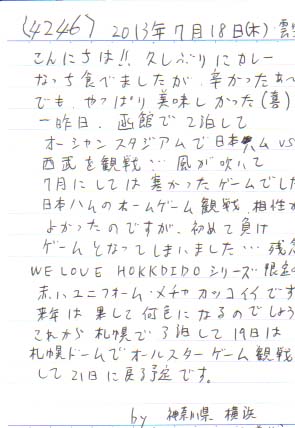 (4246) 2013年7月18日(木)
こんにちは!! 久しぶりにカレー
なっち食べましたが 辛かったあ
でも、やっぱり美味しかった(喜)
一昨日、函館で2泊して
オーシャンスタジアムで日本ハム VS
西武を観戦… 風が吹いて
7月にしては寒かったゲームでした
日本ハムのホームゲーム観戦 相性が
よかったのですが、初めて負け
ゲームとなってしまいました… 残念
WE LOVE HOKKDIDO シリーズ限定の
赤いユニフォーム・メチャカッコイイです
来年は果して何色になるのでしょう
これから札幌で3泊して19日は
札幌ドームでオールスターゲーム観戦
して21日に戻る予定です。
by 神奈川県 横浜